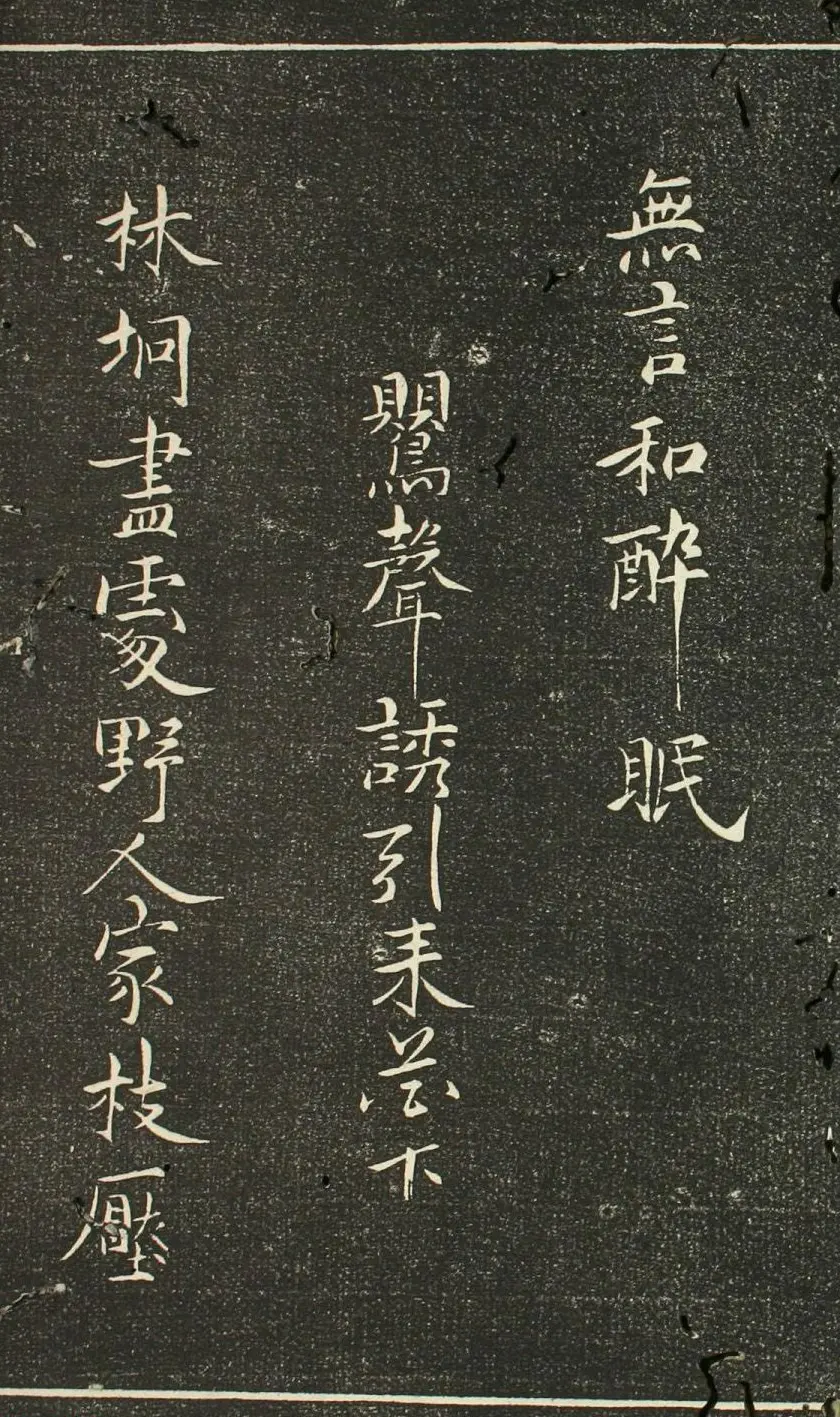 無言和醉眠
鸎聲誘引来花下
林坰盡處野人家枝壓